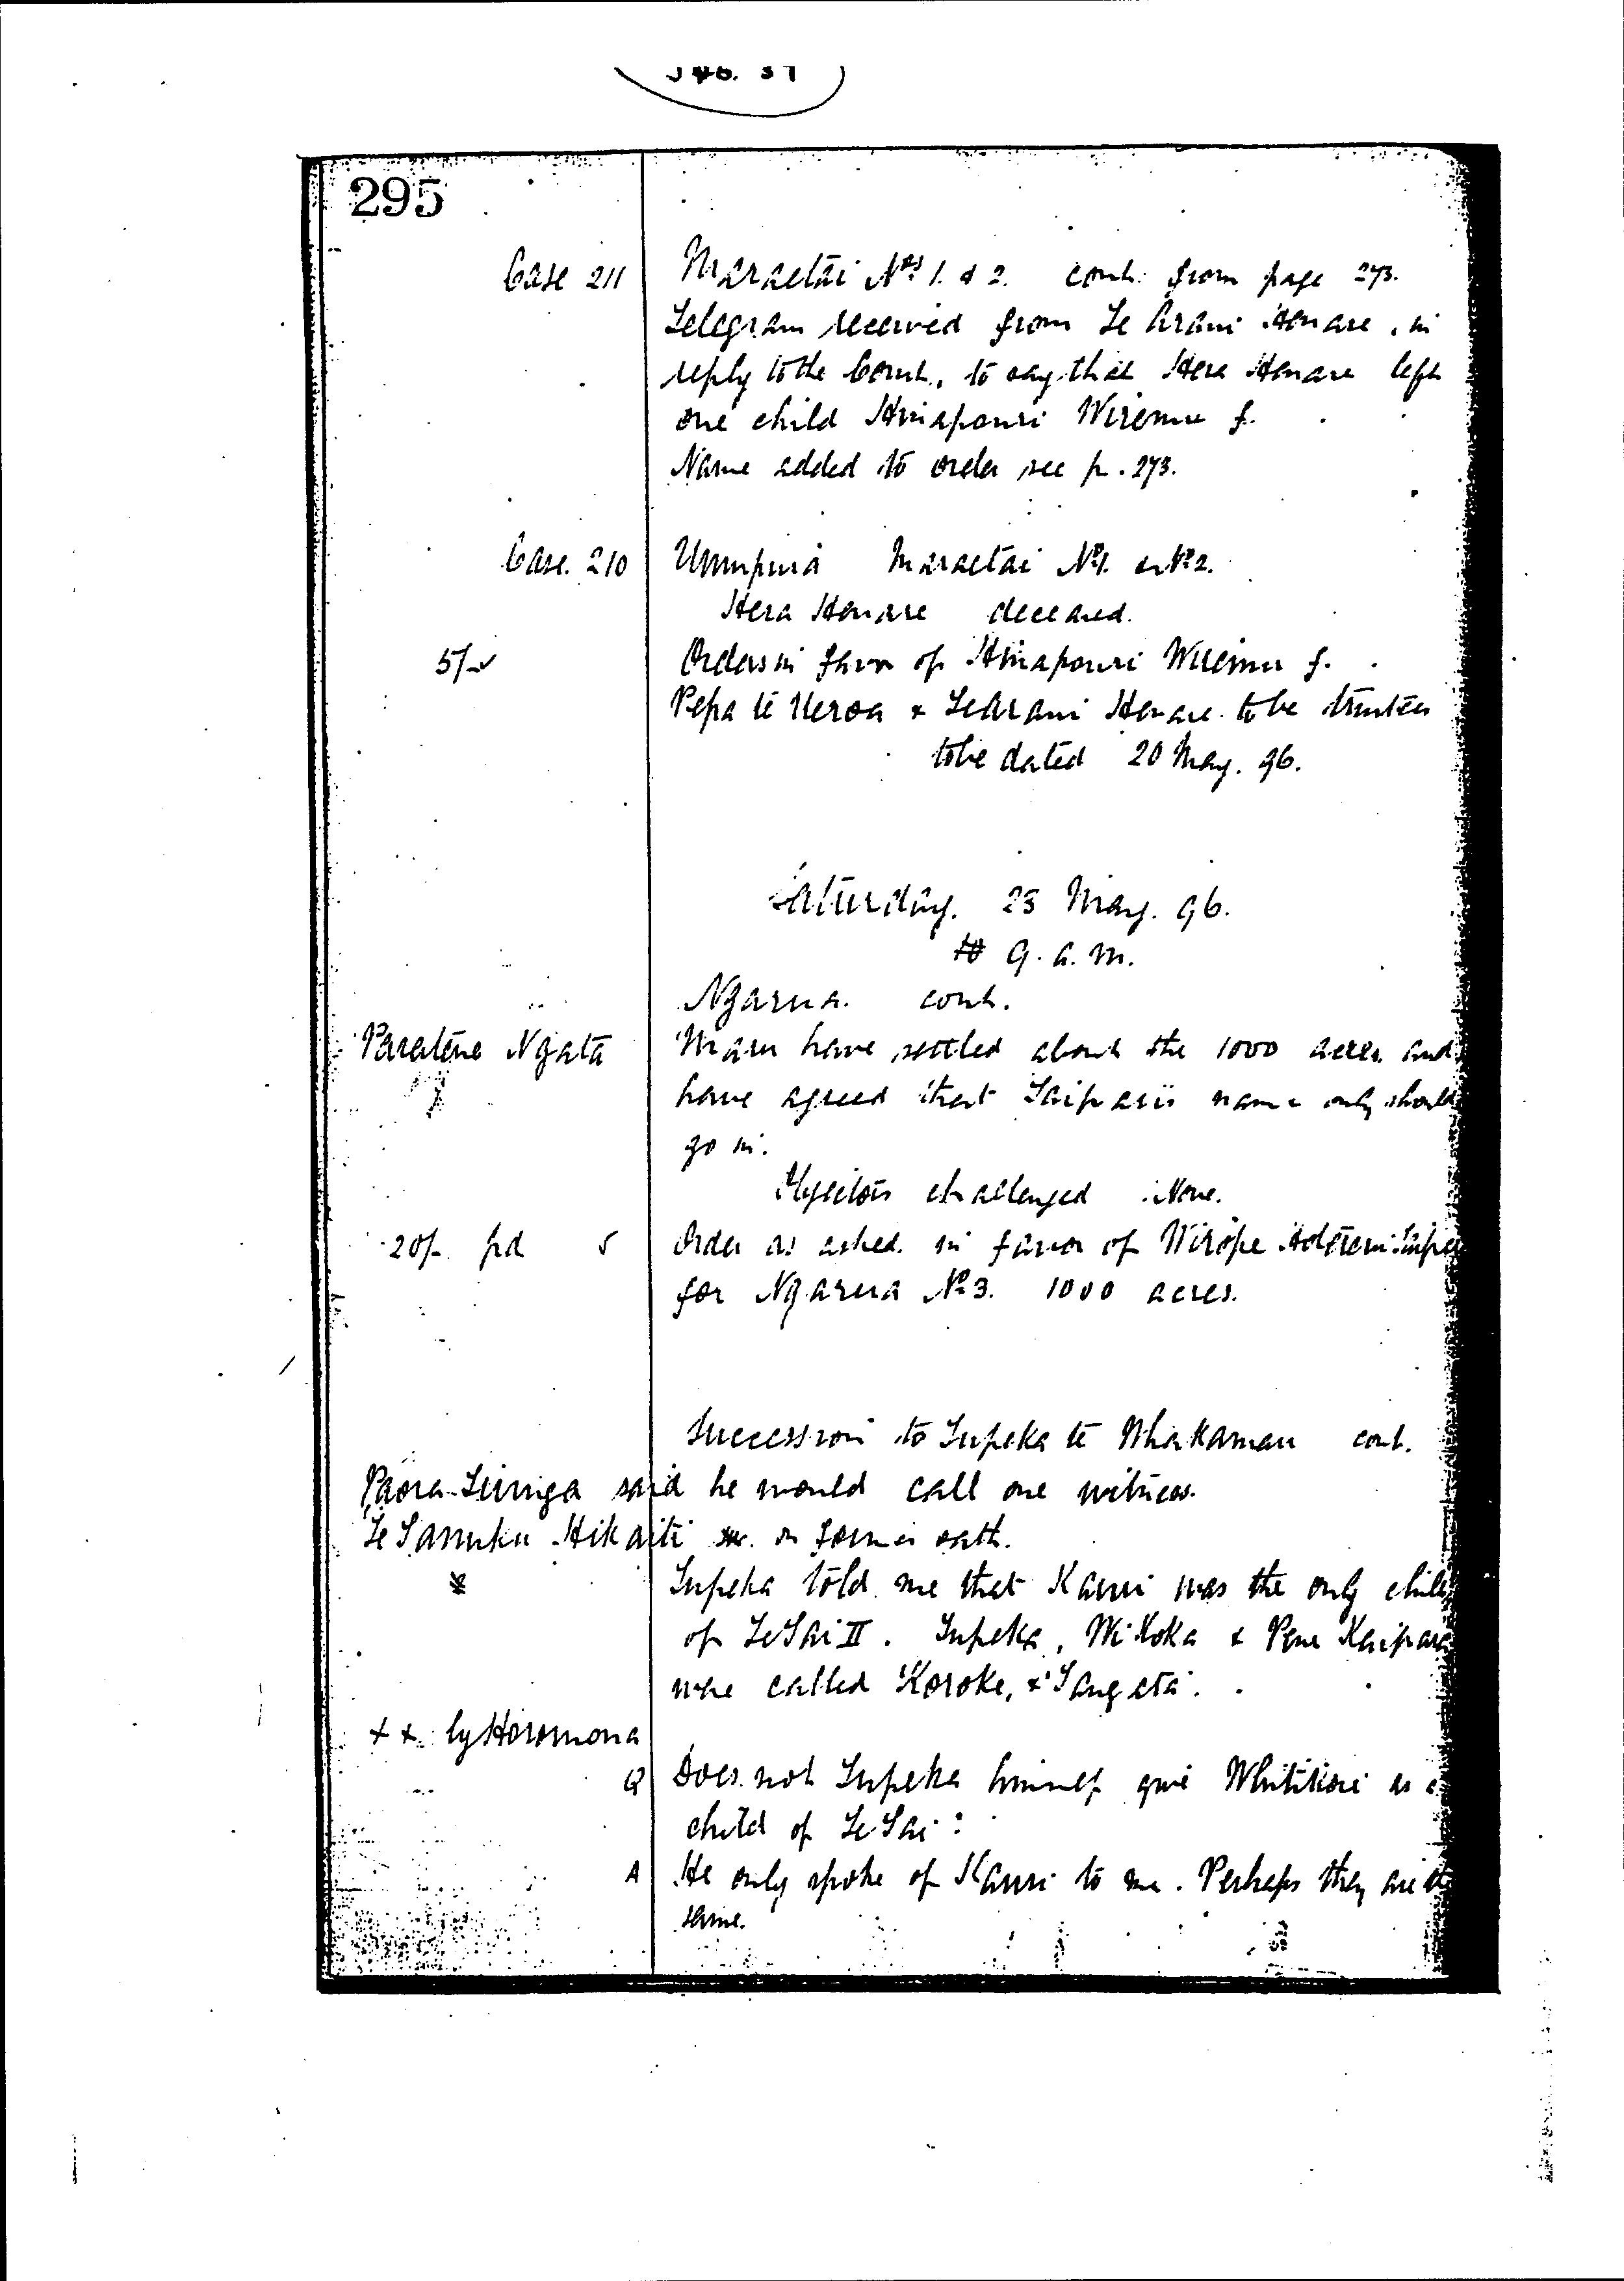 295
Case 211 Maraetai Nos 1. & 2. cont. from page 273.
Telegram received from Te Arani Henare, in
reply to the Court, to say that Hera Henare left
one child Hinapouri Wiremu f.
Name added to order see p. 273.
Case. 210 Umupuia Maraetai No 1. & No 2.
Hera Henare deceased.
5/- Orders in favor of Hinapouri Wiremu f.
Pepa te Ueroa & Te Arani Henare to be trustees
to be dated 20 May. 96.
Saturday. 23 May. 96.
9. a. m.
Ngarua. cont.
Paratene Ngata have settled about the 1000 acres and
have agreed that Taipari's name only should
go in.
Objectors challenged None.
20/- pd Order as asked in favor of Wirope Hotereni
for Ngarua No 3. 1000 acres.
Succession to Tupeka te Whakamau cont.
Paora Tiunga said he would call one witness.
Te Tanuku Hikaiti on former oath.
Tupeka told me that Kauri was the only child
of Te Tai II. Tupeka, Wi Koka & Pene Kaipara
were called Koroke, & Tangata.
x x. by Horomona
Q Does not Tupeka himself give as a
child of Te Tai:
A He only spoke of Kauri to me. Perhaps they are the
same.